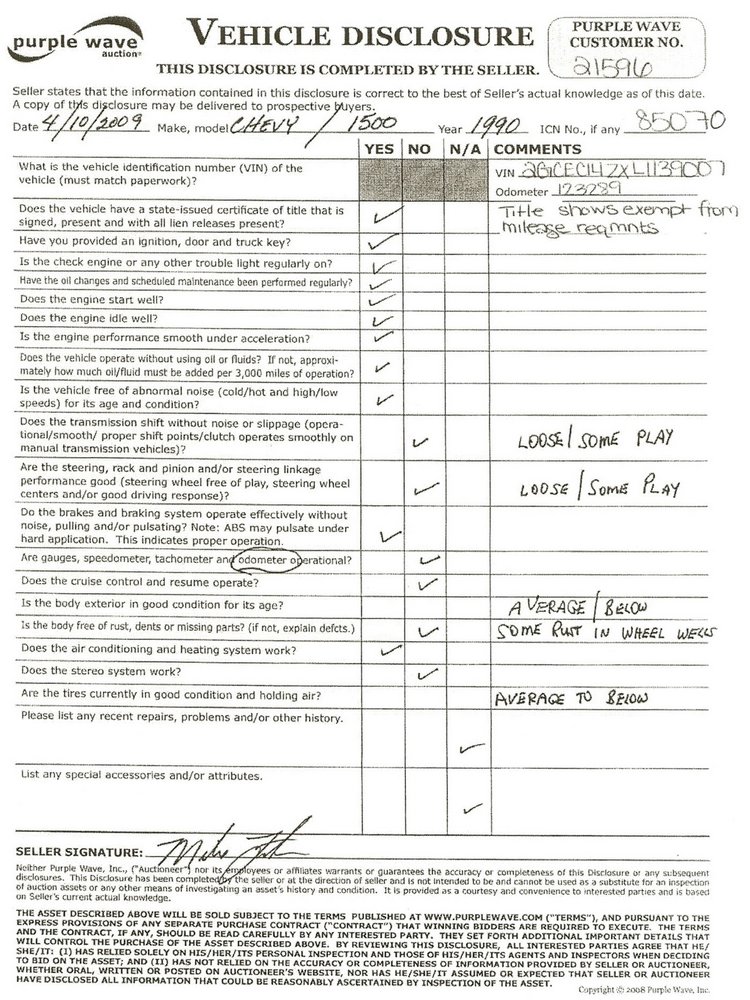 purple wave
auction®
VEHICLE DISCLOSURE
THIS DISCLOSURE IS COMPLETED BY THE SELLER.
PURPLE WAVE
CUSTOMER NO.
21596
Seller states that the information contained in this disclosure is correct to the best of Seller's actual knowledge as of this date.
A copy of this disclosure may be delivered to prospective buyers.
Date 4/10/2009 Make, model CHEVY / 1500 Year 1990 ICN No., if any 85070
YES NO N/A COMMENTS
What is the vehicle identification number (VIN) of the
vehicle (must match paperwork)?
VIN 2GCEC14ZXL1139007
Odometer 123289
Does the vehicle have a state-issued certificate of title that is
signed, present and with all lien releases present?
Title shows exempt from
mileage reqmnts
Have you provided an ignition, door and truck key?
Is the check engine or any other trouble light regularly on?
Have the oil changes and scheduled maintenance been performed regularly?
Does the engine start well?
Does the engine idle well?
Is the engine performance smooth under acceleration?
Does the vehicle operate without using oil or fluids? If not, approxi-
mately how much oil/fluid must be added per 3,000 miles of operation?
Is the vehicle free of abnormal noise (cold/hot and high/low
speeds) for its age and condition?
Does the transmission shift without noise or slippage (opera-
tional/smooth/ proper shift points/clutch operates smoothly on
manual transmission vehicles)?
LOOSE/SOME PLAY
Are the steering, rack and pinion and/or steering linkage
performance good (steering wheel free of play, steering wheel
centers and/or good driving response)?
LOOSE/SOME PLAY
Do the brakes and braking system operate effectively without
noise, pulling and/or pulsating? Note: ABS may pulsate under
hard application. This indicates proper operation.
Are gauges, speedometer, tachometer and odometer operational?
Does the cruise control and resume operate?
Is the body exterior in good condition for its age?
AVERAGE/BELOW
Is the body free of rust, dents or missing parts? (if not, explain defcts.)
SOME RUST IN WHEEL WELLS
Does the air conditioning and heating system work?
Does the stereo system work?
Are the tires currently in good condition and holding air?
AVERAGE TO BELOW
Please list any recent repairs, problems and/or other history.
List any special accessories and/or attributes.
SELLER SIGNATURE: Mike
Neither Purple Wave, Inc., ("Auctioneer") nor its employees or affiliates warrants or guarantees the accuracy or completeness of this Disclosure or any subsequent
disclosures. This Disclosure has been completed by the seller or at the direction of seller and is not intended to be and cannot be used as a substitute for an inspection
of auction assets or any other means of investigating an asset's history and condition. It is provided as a courtesy and convenience to interested parties and is based
on Seller's current actual knowledge.
THE ASSET DESCRIBED ABOVE WILL BE SOLD SUBJECT TO THE TERMS PUBLISHED AT WWW.PURPLEWAVE.COM ("TERMS"), AND PURSUANT TO THE
EXPRESS PROVISIONS OF ANY SEPARATE PURCHASE CONTRACT ("CONTRACT") THAT WINNING BIDDERS ARE REQUIRED TO EXECUTE. THE TERMS
AND THE CONTRACT, IF ANY, SHOULD BE READ CAREFULLY BY ANY INTERESTED PARTY. THEY SET FORTH ADDITIONAL IMPORTANT DETAILS THAT
WILL CONTROL THE PURCHASE OF THE ASSET DESCRIBED ABOVE. BY REVIEWING THIS DISCLOSURE, ALL INTERESTED PARTIES AGREE THAT HE/
SHE/IT: (I) HAS RELIED SOLELY ON HIS/HER/ITS PERSONAL INSPECTION AND THOSE OF HIS/HER/ITS AGENTS AND INSPECTORS WHEN DECIDING
TO BID ON THE ASSET; AND (II) HAS NOT RELIED ON THE ACCURACY OR COMPLETENESS OF INFORMATION PROVIDED BY SELLER OR AUCTIONEER,
WHETHER ORAL, WRITTEN OR POSTED ON AUCTIONEER'S WEBSITE, NOR HAS HE/SHE/IT ASSUMED OR EXPECTED THAT SELLER OR AUCTIONEER
HAVE DISCLOSED ALL INFORMATION THAT COULD BE REASONABLY ASCERTAINED BY INSPECTION OF THE ASSET.
Copyright © 2008 Purple Wave, Inc.